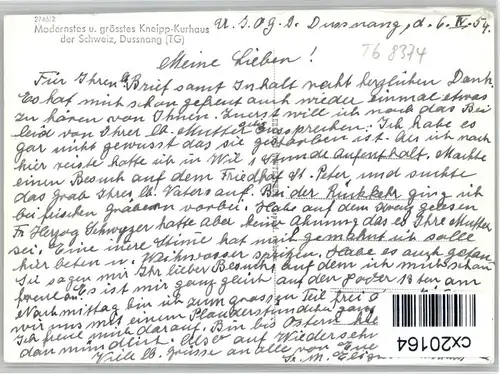 274612
Modernstes u. grösstes Kneipp-Kurhaus
der Schweiz, Dussnang (TG)
Dussnang, d. 6. IV. 54.
T6 8374
Meine Lieben!
Für Ihren Brief samt Inhalt recht herzlichen Dank.
Es hat mich schon gefreut auch wieder einmal etwas
zu hören von Ihnen. Zuerst will ich noch das Bei
leid von Ihrer lb. Mutter aussprechen. Ich habe es
gar nicht gewusst das sie gestorben ist. Als ich nach
hier reiste hatte ich in Wil 1 Stunde Aufenthalt. Machte
einen Besuch auf dem Friedhof St. Peter und suchte
das Grab Ihres lb. Vaters auf. Bei der Rückkehr ging ich
bei frischen Gräbern vorbei. Habe auf dem gelesen
Fr. Herzog Schwyzer hatte aber keine Ahnung das es Ihre Mutter
sei. Eine innere Stimme hat mich gemahnt ich solle
hier beten u. Weihwasser spritzen. Habe es auch getan.
Sie sagen mir Ihr lieber Besuch auf dem ich mich schon
freue. Es ist mir ganz gleich auf den oder 18ten am
Nachmittag bin ich zum grossen Teil frei
wir uns mit einem Plauderstündchen
Ich freue mich darauf. Bin bis Ostern
dan mündlich. Also auf Wiedersehn
Viele lb. Grüsse an alle von
Sr. M.
cx20164